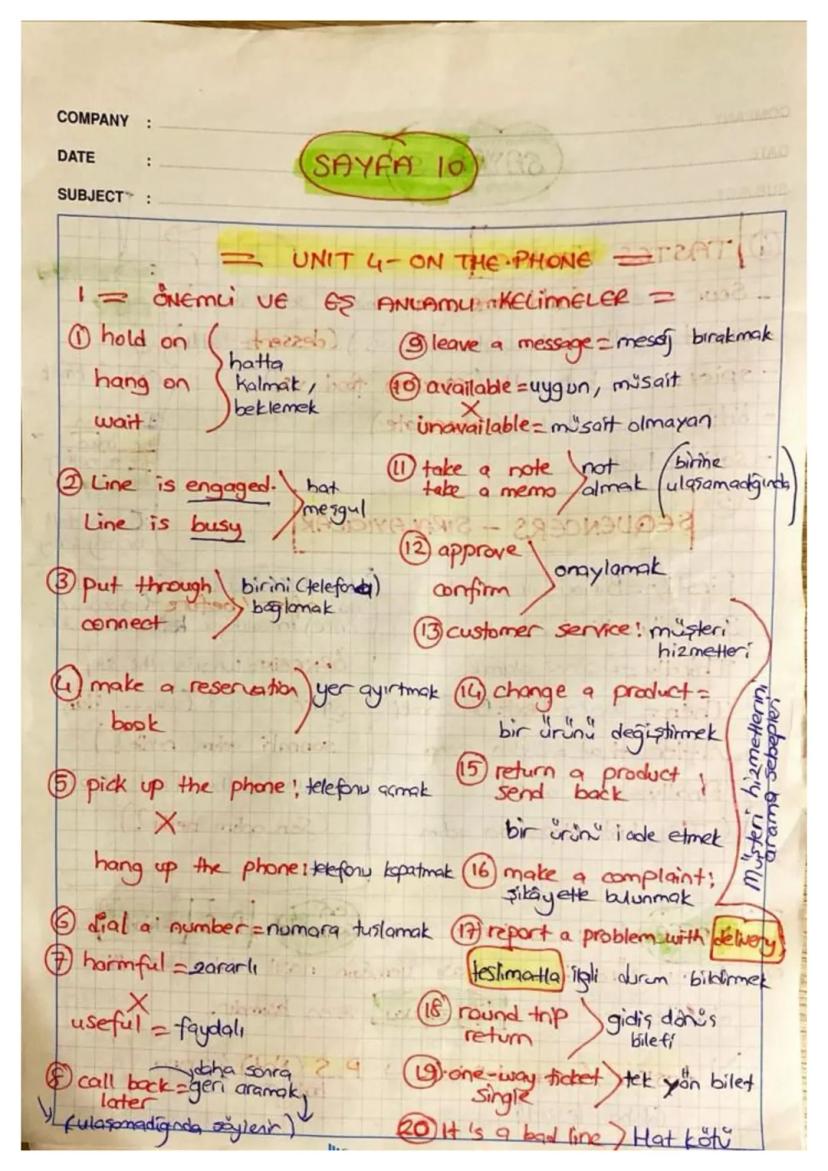 COMPANY :
DATE :
SUBJECT :
SAYFA 10
= UNIT 4 - ON THE PHONE =
1 = ÖNEMLİ VE EŞ ANLAMLI KELİMELER =
① hold on
hang on
wait
hatta
kalmak,
beklemek
② Line is engaged.
Line is busy
hat
meşgul
③ put through
connect
birini (telefonda)
bağlamak
④ make a reservation
book
yer ayırtmak
⑤ pick up the phone: telefonu açmak
X
hang up the phone: telefonu kapatmak
⑥ dial a number = numara tuslamak
⑦ harmful = zararlı
X
useful = faydalı
⑧ call back = geri aramak
later
daha sonra
(ulaşamadığında söylenir)
⑨ leave a message = mesaj bırakmak
⑩ available = uygun, müsait
X
unavailable = müsait olmayan
⑪ take a note
take a memo
not
almak
(birine
ulaşamadığında)
⑫ approve
confirm
onaylamak
⑬ customer service: müşteri
hizmetleri
⑭ change a product =
bir ürünü değiştirmek
⑮ return a product
send back
bir ürünü iade etmek
⑯ make a complaint:
şikâyette bulunmak
⑰ report a problem with delivery
teslimatla ilgili durum bildirmek
Müşteri hizmetlerini
arama sebepleri
⑱ round trip
return
gidiş dönüş
bileti
⑲ one-way ticket
single
tek yön bilet
⑳ It's a bad line > Hat kötü